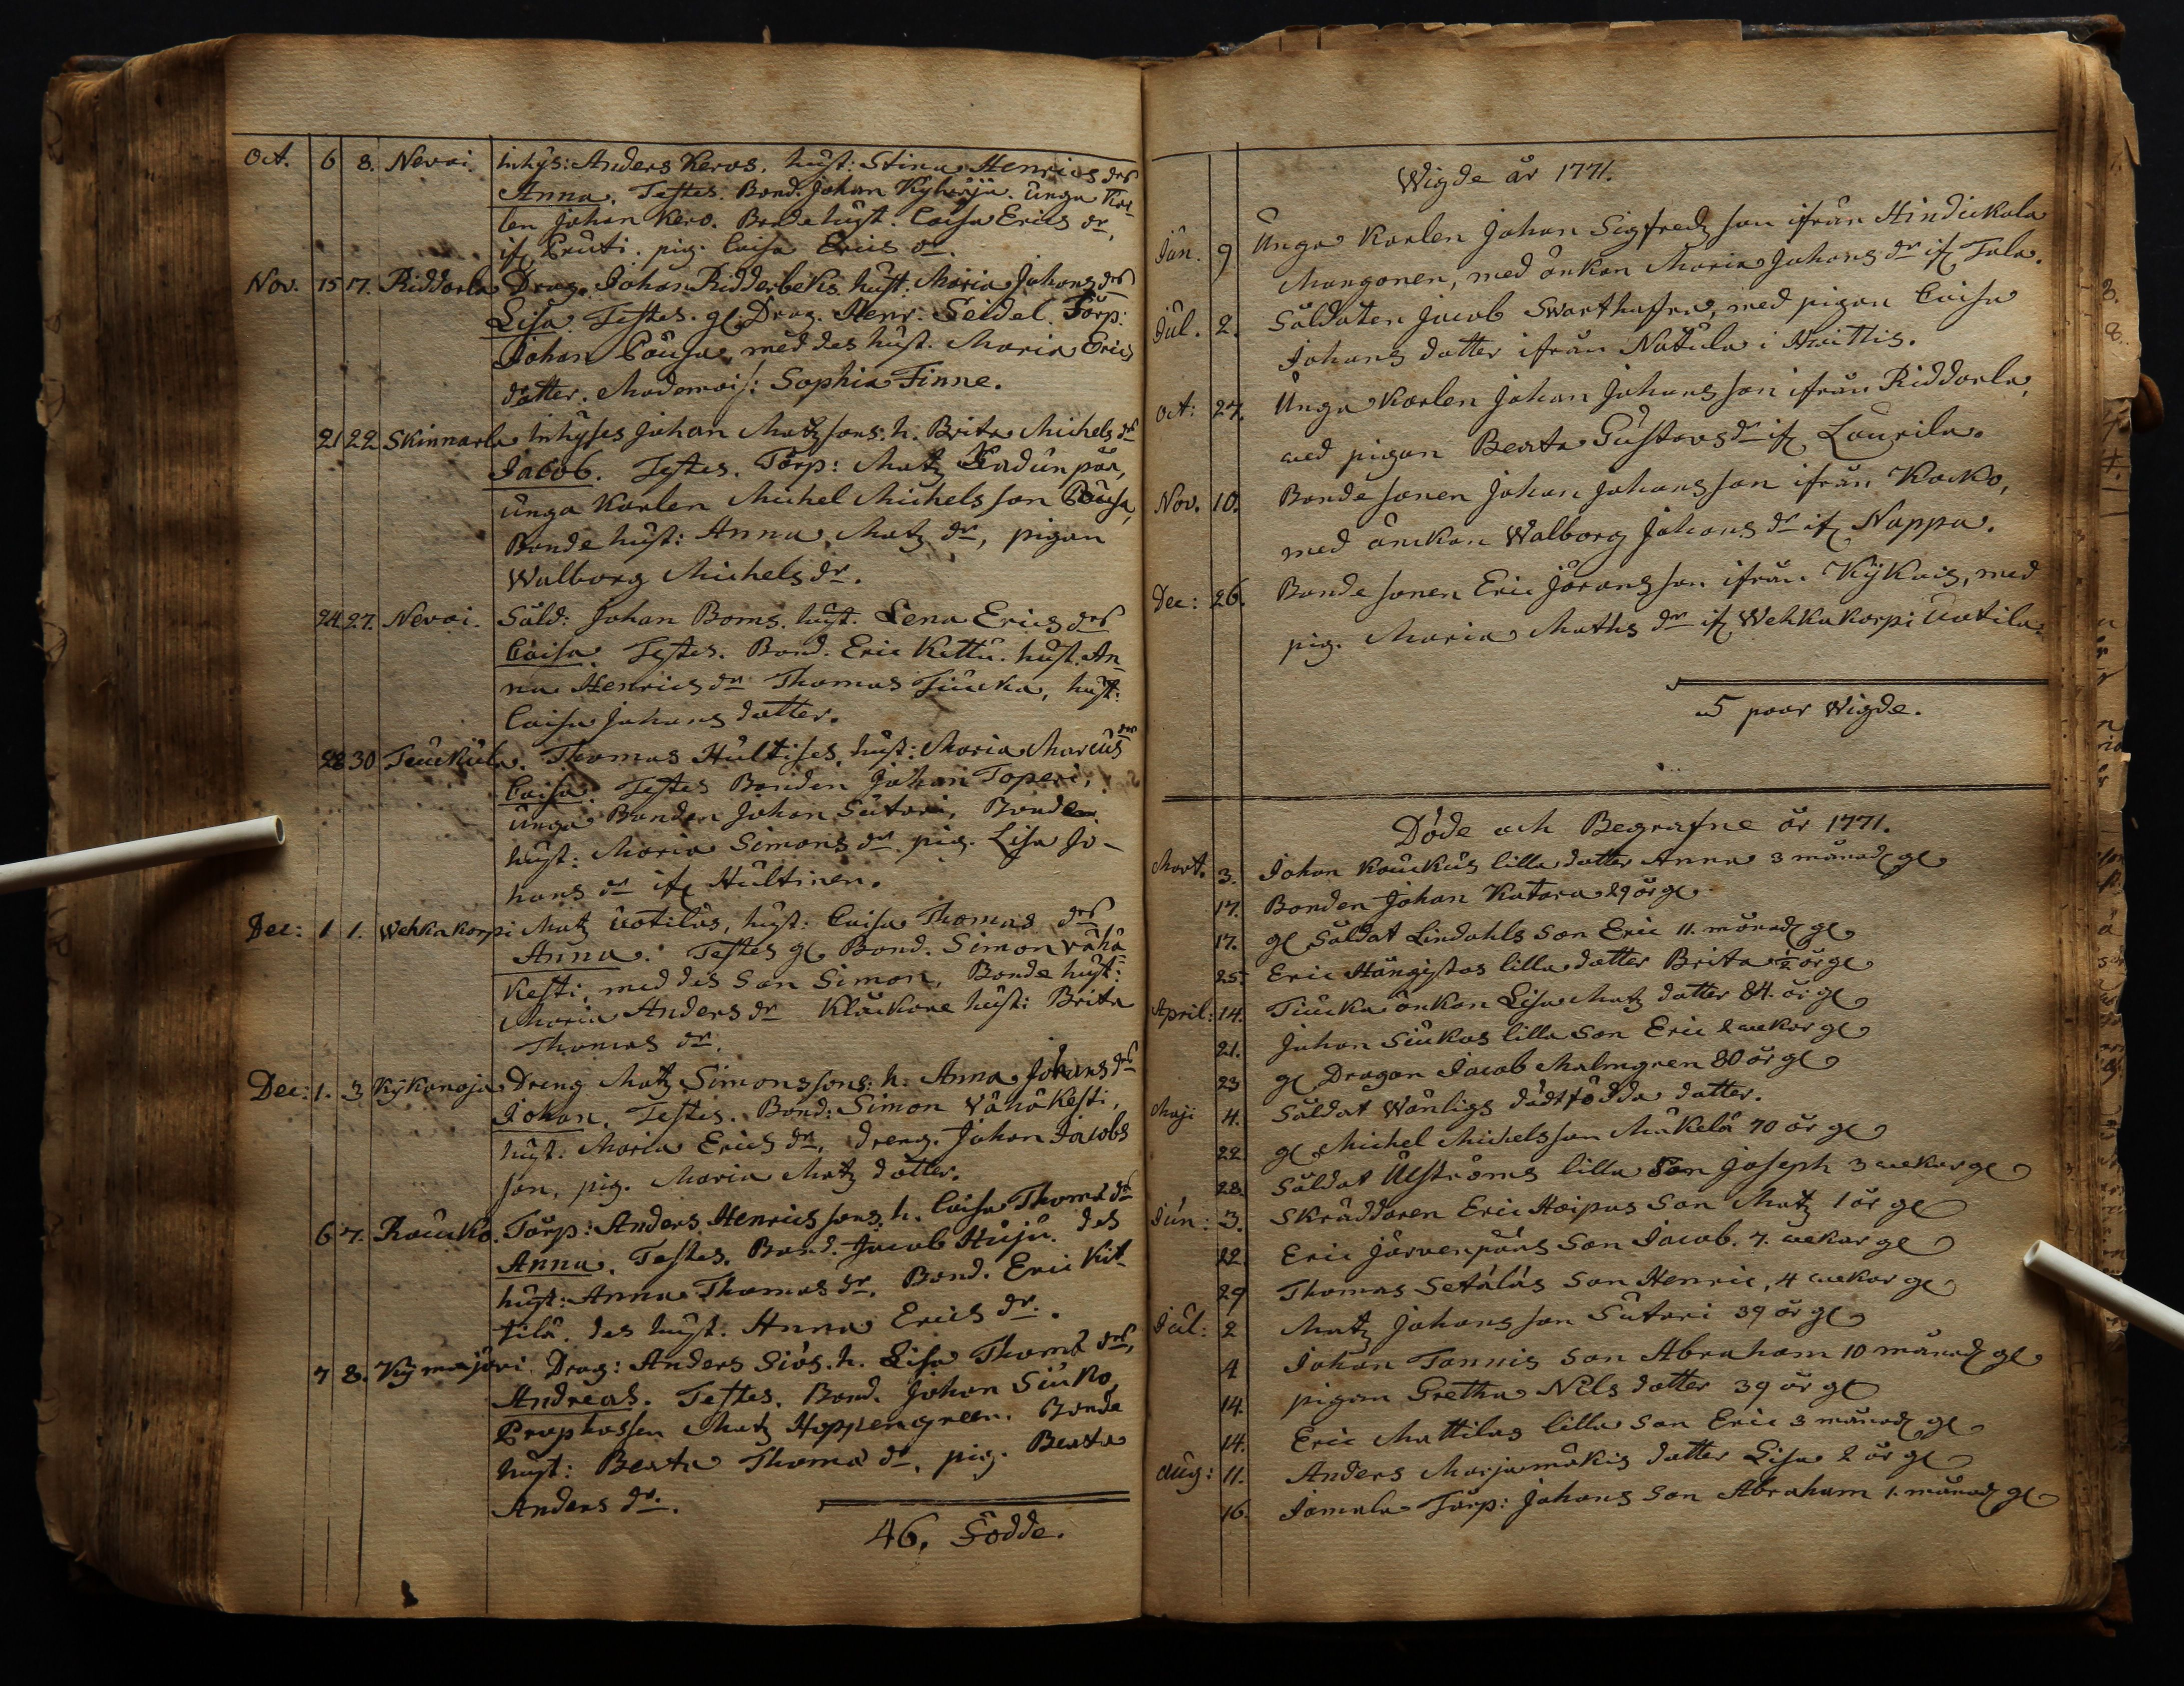 Oct. 6 8. Nevoi. Inhys: Anders Keros. hust: Stina Henrics drs
Anna. Testes. Bond. Johan Kyläpja. Unga Kar
len Johan Kero. Bonde hust. Caisa Erics dr,
if Pruti. pig. Caisa Erics dr.
Nov. 15 17. Riddarla Drag. Johan Ridderbeks hust: Maria Johans drs
Lisa. Testes. gl. Drag. Henr. Seidel. Torp:
Johan Pousa, med des hust. Maria Erics
dotter. Mademois: Sophia Finne.
21 22 Skinnarla Inhyses Johan Matz sons: h. Brita Michels dr
Jacob. Testes. Torp: Matz Ladunpää,
Unga Karlen Michel Michels son Pousa,
Bonde hust: Anna Matz dr, pigan
Walborg Michels dr.
24 27. Nevoi. Sold: Johan Boms. hust. Lena Erics drs
Caisa. Testes. Bond. Eric Kettu. hust. An
na Henrics dr Thomas Tiucka, hust:
Caisa Johans dotter.
28 30 Teuckula. Thomas Hultises, hust: Maria Marcus drs
Caisa. Testes Bonden Johan Toperi,
unga Bonden Johan Sutari, Bonde
hust: Maria Simons dr. pig. Lisa Jo-
hans dr if Hultinen.
Dec: 1 1. Wehkakorpi Matz Uotilas, hust: Caisa Thomas drs
Anna. Testes gl. Bond. Simon Vähä
Kesti, med des Son Simon, Bonde hust:
Maria Anders dr Klåckare hust: Brita
Thomas dr.
Dec: 1. 3 Kykanoja Dreng Matz Simons sons: h. Anna Johans drs
Johan. Testes. Bond: Simon Vähäkesti,
hust. Maria Erics dr, dreng. Johan Jacobs
son, pig. Maria Matz dotter.
6 7. Roucko. Torp: Anders Henrics sons: h. Caisa Thoma dr
Anna. Testes. Bond. Jacob Huju. des
hust: Anna Thomas dr. Bond. Eric Kit
tilä. des hust. Anna Erics dr.
7 8. Kymajovi Drag: Anders Siös. h. Lisa Thoma drs,
Andreas. Testes. Bond. Johan Siuko,
Prophossen Matz Hoppengreen. Bonde
hust: Beata Thoma dr, pig. Beata
Anders dr.
46. Födde.
Wigde år 1771.
Jan. 9 Unga Karlen Johan Sigfredz son ifrån Hindickala
Mangonen, med änkan Maria Johans dr if Tala.
Jul. 2. Soldaten Jacob Swarthafre, med pigan Caisa
Johans dotter ifrån Natula i Huittis.
Oct: 27. Unga Karlen Johan Johans son ifrån Riddarla,
med pigan Beata Gustavs dr if Laurila.
Nov. 10. Bonde sonen Johan Johans son ifrån Kocko,
med änckan Walborg Johans dr if Nappa.
Dec: 26. Bonde sonen Eric Jörans son ifrån Kykois, med
pig. Maria Maths dr if Wehkakorpi Uotila.
5 paar Wigde.
Döde och Begrafne år 1771.
Mart. 3. Johan Kouckus lilla dotter Anna 3 månad gl
17. Bonden Johan Katara 29 år gl
17. gl Soldat Lindahls Son Eric 11. månad gl
25. Eric Hängistos lilla dotter Brita ½ år gl
April: 14. Tiucka änkan Lisa Matz dotter 84. år gl
21. Johan Siukos lilla Son Eric 2 wekor gl
23 gl Dragon Jacob Malmgren 80 år gl
Maji 4. Soldat Wänligs dödfödda dotter.
22 gl Michel Michels son Mäkelä 70 år gl
28. Soldat Ulströms lilla Son Joseph 3 wekor gl
Jun: 3. Skräddaren Eric Hoipus Son Matz 1 år gl
22. Eric Järvenpääs Son Jacob. 7. wekor gl
29 Thomas Setäläs Son Henric, 4 wekor gl
Jul: 2 Matz Johans son Sutari 39 år gl
4 Johan Tannis Son Abraham 10 månad gl
14. pigan Gretha Nils dotter 39 år gl
14. Eric Mattilas lilla Son Eric 3 månad gl
Aug: 11. Anders Marjamäkis dotter Lisa 2 år gl
16. Jamala Torp: Johans Son Abraham 1. månad gl